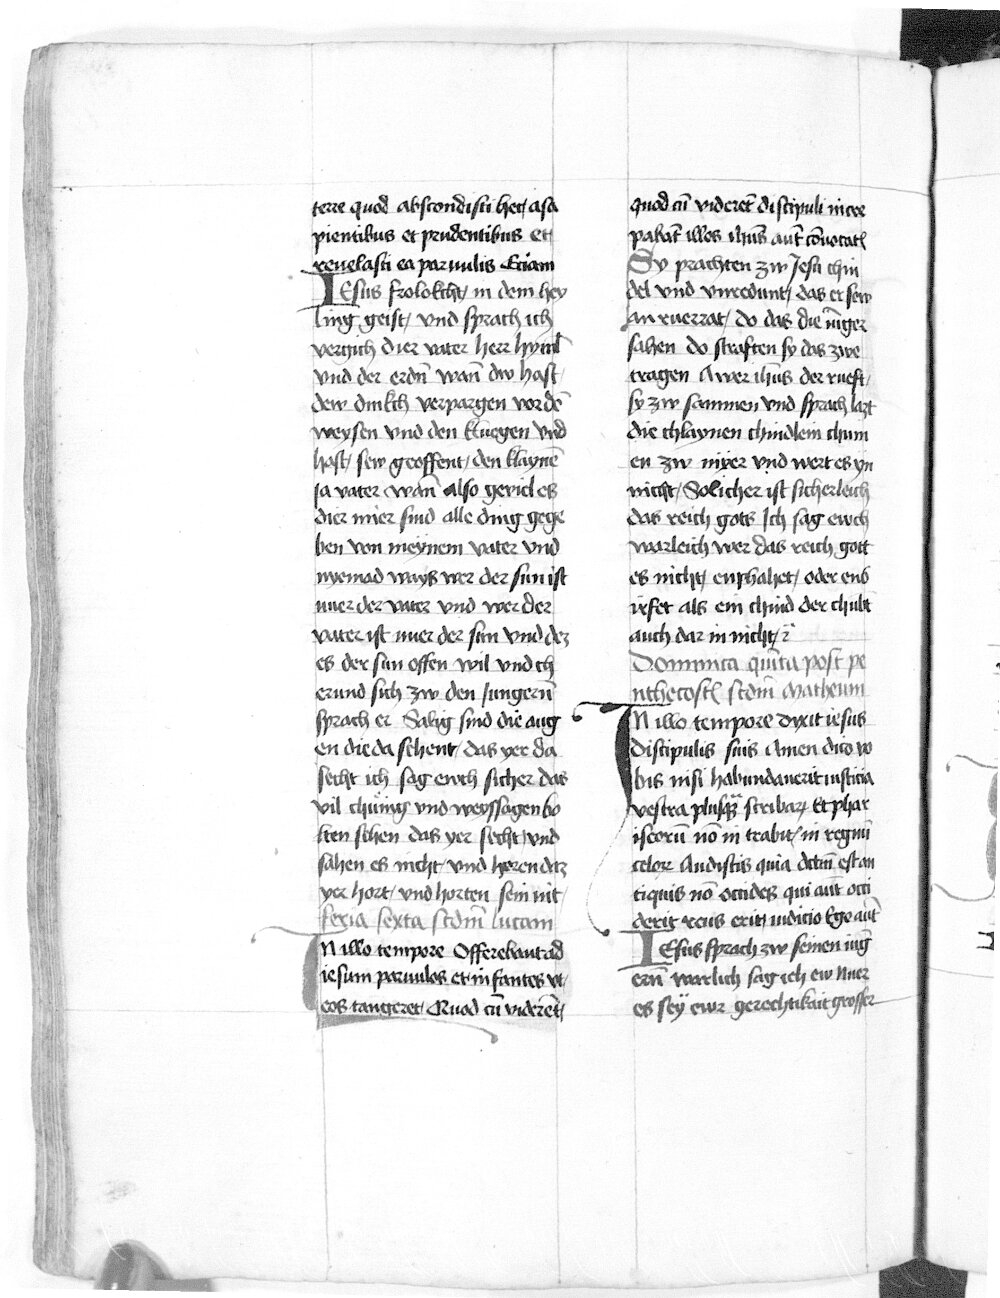 terre quod abscondisti hec asa
pientibus et prudentibus et
revelasti ea parvulis Etiam
IEsus frolokcht in dem hey
ling geist und sprach ich
vergich dier vater herr hyml
und der erdn̄ wan̄ dw hast
dew dinkch verpargen vor dē
weysen und den kluegen und
host sew geoffent den klaynē
ja vater wan̄ also geviel es
dier mier sind alle ding gege
ben von meynem vater und
nyemad ways wer der sun ist
nuer der vater und wer der
vater ist nuer der sun und dez
es der sun offen wil und ch
erund sich zw den Jungern̄
sprach er Salig sind die aug
en die da sehent das yer da
secht ich sag ewch sicher das
vil chunig und weyssagen wo
lten sehen das yer secht und
sahen es nicht und horen dez
yer hort und horten sein nit
feria sexta scdm̄ lucam
IN illo tempore Offerebant ad
iesum parvulos et infantes vt
eos tangeret Quod cū viderēt
quod cū viderēt discipuli incre
pabāt illos ihūs aūt cōvocatꝭ
Sy prachten zw Jesu chin
del und vnredunt das er sew
an ruerrat do das die iūger
sahen do straften sy das zwe
tragen Awer ihūs der rueft
sy zw sammen und sprach lazt
die chlaynen chindlein chum
en zw myer und wert es yn
nicht Solicher ist sicherleich
das reich gots Ich sag ewch
warleich wer das reich gott
es nicht enphahet oder ens
irfet als ein chind der chūbt
auch dar in nicht
Dominica quīta post pe
nthecostꝭ scdm̄ Matheum
IN illo tempore dixit iesus
discipulis suis Amen dico vo
bis nisi habundaverit iusticia
vestra plusq̄ꝫ scribaꝝ Et phar
iseorū nō in trabit in regnū
celoꝝ Audistis quia dictū est an
tiquis nō occides qui aūt occi
derit reus erit iudicio Ego aūt
IEsus sprach zw seinen iūg
ern̄ warlich sag ich ew Nuer
es sey ewr gerechtikait grosser